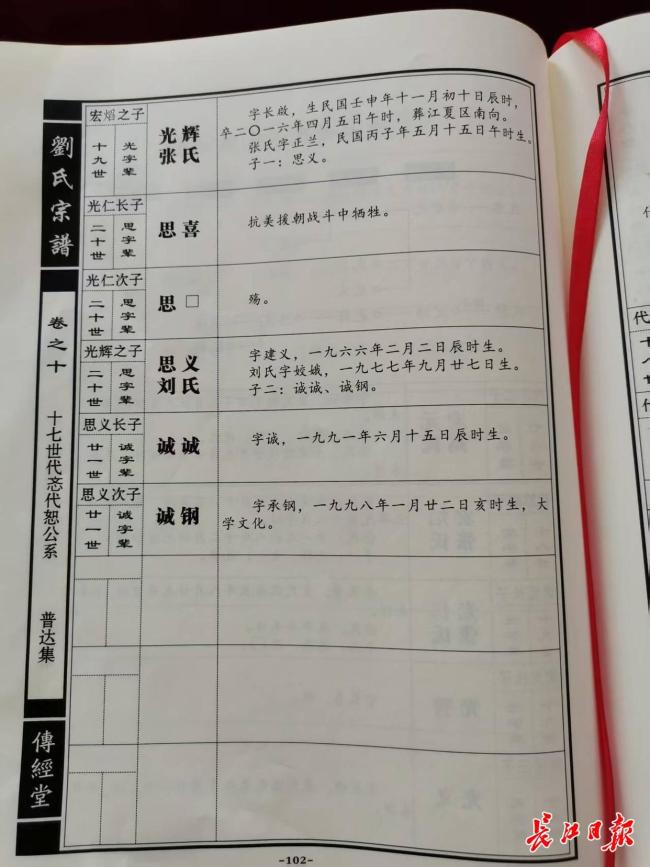 劉氏宗譜
卷之十
十七世代忞代恕公系
普达集
傳經堂
宏熖之子
十九世
光字辈
光辉
张氏
字长啟，生民国壬申年十一月初十日辰时，
卒二〇一六年四月五日午时，葬江夏区南向。
张氏字正兰，民国丙子年五月十五日午时生。
子一：思义。
光仁长子
二十世
思字辈
思喜
抗美援朝战斗中牺牲。
光仁次子
二十世
思字辈
思□
殇。
光辉之子
二十世
思字辈
思义
刘氏
字建义，一九六六年二月二日辰时生。
刘氏字姣娥，一九七七年九月廿七日生。
子二：诚诚、诚钢。
思义长子
廿一世
诚字辈
诚诚
字诚，一九九一年六月十五日辰时生。
思义次子
廿一世
诚字辈
诚钢
字承钢，一九九八年一月廿二日亥时生，大
学文化。
-102-
代
长江日报